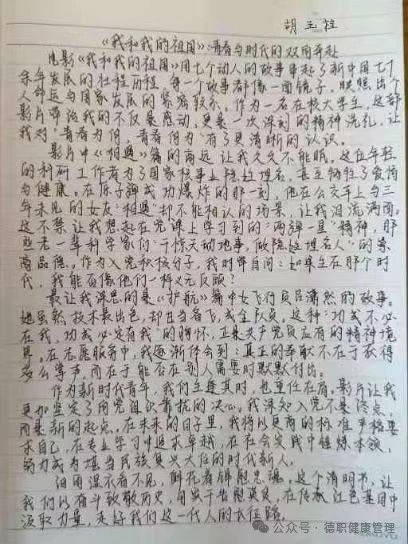 胡玉柱
《我和我的祖国》:青春与时代的双向奔赴
电影《我和我的祖国》用七个动人的故事串起了新中国七十
余年发展的壮程历程,每一个故事都像一面镜子,映照出个
人命运与国家发展的紧密联系。作为一名在校大学生,这部
影片带给我的不仅是感动,更是一次深刻的精神洗礼,让
我对"青春为何,青春何为"有了更清晰的认识。
影片中《相遇》篇的高远让我久久不能眠。这位年轻
的科研工作者为了国家核事业隐姓埋名,甚至牺牲了爱情
与健康。在原子弹成功爆炸的那一刻,他在公交车上与三
年未见的女友"相遇"却不能相认的场景,让我泪流满面。
这不禁让我想起在党课上学习到的"两弹一星"精神,那
些老一辈科学家们"干惊天动地事,做隐姓埋名人"的崇
高品德。作为入党积极分子,我时常自问:如果生在那个时
代,我能否像他们一样义无反顾?
最让我深思的是《护航》篇中女飞行员吕潇然的故事。
她虽然技术最出色,却甘当备飞,成全队友。这种"功成不必
在我,功成必定有我"的胸怀,正是共产党员应有的精神境
界。在志愿服务中,我逐渐体会到:真正的奉献不在于获得
多么掌声,而在于能否在别人需要时默默付出。
作为新时代青年,我们生逢其时,也重任在肩。影片让我
更加坚定了向党组织靠拢的决心。我深知入党不是终点,
而是新的起点。在未来的日子里,我将以更高的标准严格要
求自己,在专业学习中追求卓越,在社会实践中锤炼本领,
努力成为堪当民族复兴大任的时代新人。
细雨湿衣看不见,鲜花着屏慰忠魂。这个清明节,让
我们以奋斗致敬历史,用实干告慰英灵,在传承红色基因中
汲取力量,走好我们这一代人的长征路。
公众号·德职健康管理